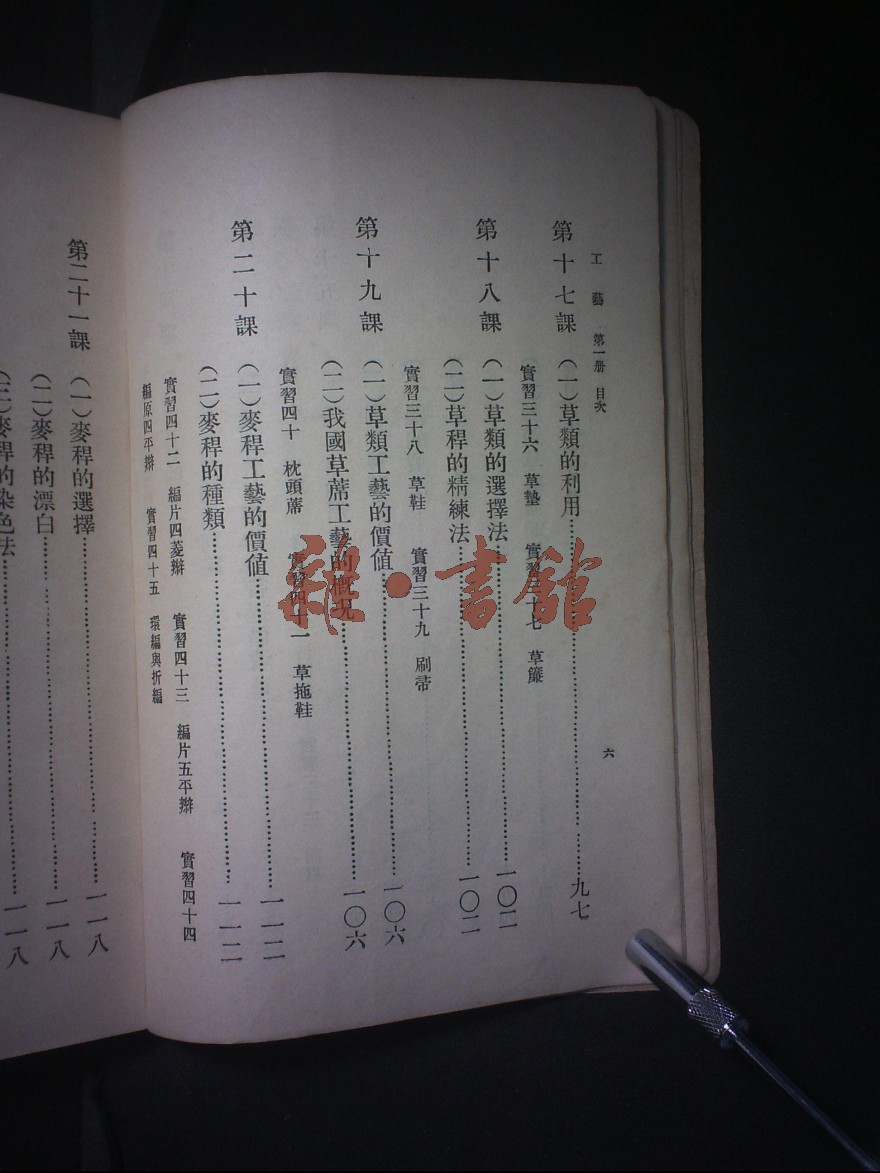 工藝 第一册 目次
六
第十七課 (一)草類的利用……九七
實習三十六 草墊 實習三十七 草簾
第十八課 (一)草類的選擇法……一〇二
(二)草稈的精練法……一〇二
實習三十八 草鞋 實習三十九 刷帚
第十九課 (一)草類工藝的價值……一〇六
(二)我國草蓆工藝的概况……一〇六
實習四十 枕頭蓆 實習四十一 草拖鞋
第二十課 (一)麥稈工藝的價值……一一二
(二)麥稈的種類……一一二
實習四十二 編片四菱辮 實習四十三 編片五平辮 實習四十四
編原四平辮 實習四十五 環編與折編
第二十一課 (一)麥稈的選擇……一一八
(二)麥稈的漂白……一一八
(三)麥稈的染色法……一一八
雜·書館